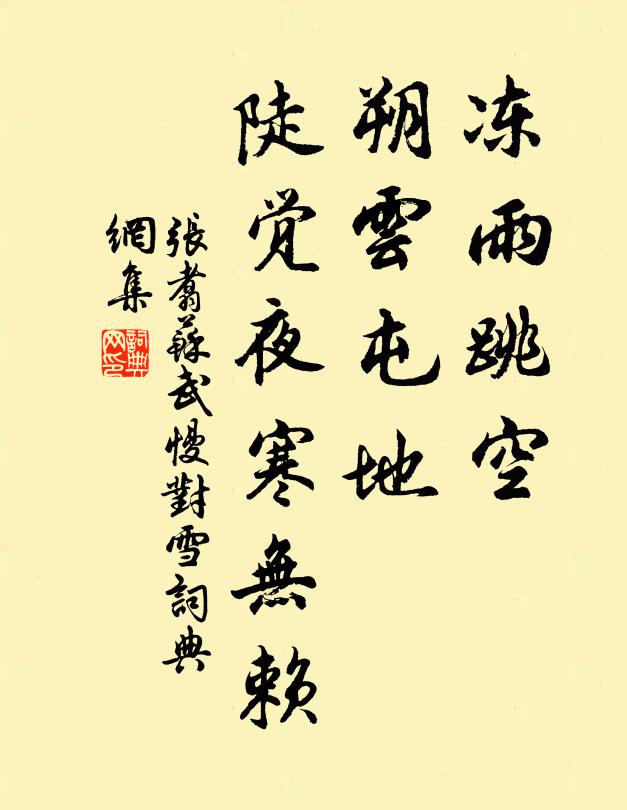 冻雨跳空
朔雲屯地
陡觉夜寒無赖
張翥蘇武慢對雪詞典
網集
詞典
网印